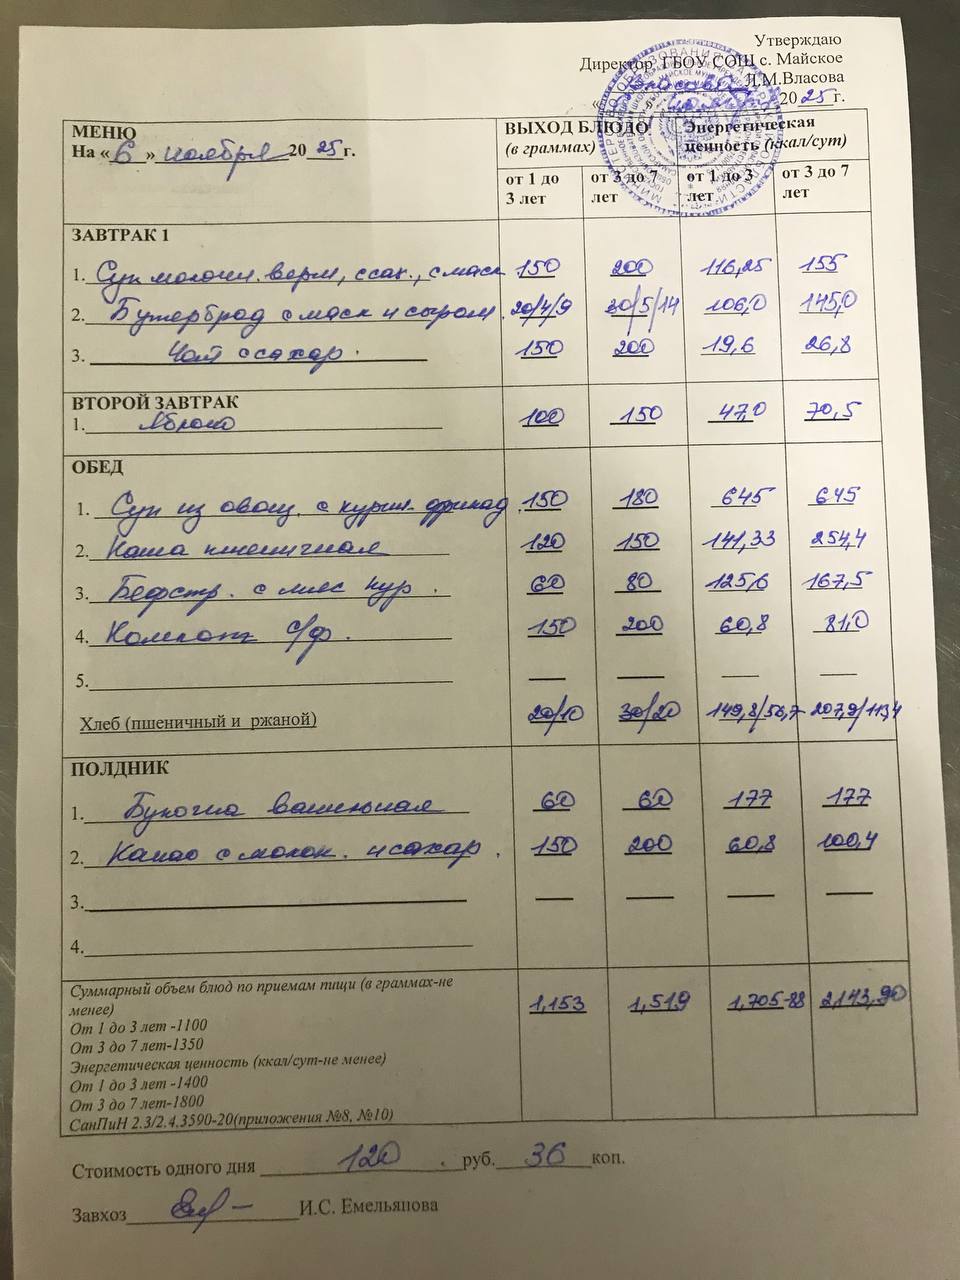 Утверждаю
Директор ГБОУ СОШ с. Майское
Л.М.Власова
2025г.
МЕНЮ
На «6» ноября 2025г.
ВЫХОД БЛЮДО (в граммах)
Энергетическая ценность (ккал/сут)
от 1 до 3 лет
от 3 до 7 лет
от 1 до 3 лет
от 3 до 7 лет
ЗАВТРАК 1
1. Суп молочн. верм, с сах., с масл 150 200 116,25 155
2. Бутерброд с масл и сыром. 20/4/9 30/5/14 106,0 145,0
3. Чай с сахар. 150 200 19,6 26,8
ВТОРОЙ ЗАВТРАК
1. Яблоко 100 150 47,0 70,5
ОБЕД
1. Суп из овощ. с курин. фрикад. 150 180 645 645
2. Каша пшеничная 120 150 141,33 254,4
3. Бефстр. с мяс кур. 60 80 125,6 167,5
4. Компот с/ф. 150 200 60,8 81,0
5. — — — —
Хлеб (пшеничный и ржаной) 20/10 30/20 149,8/56,7 207,9/113,4
ПОЛДНИК
1. Булочка ванильная 60 60 177 177
2. Какао с молок. и сахар. 150 200 60,8 100,4
3. — — — —
4.
Суммарный объем блюд по приемам пищи (в граммах-не менее) 1,153 1,519 1,705-88 2143,90
От 1 до 3 лет -1100
От 3 до 7 лет-1350
Энергетическая ценность (ккал/сут-не менее)
От 1 до 3 лет -1400
От 3 до 7 лет-1800
СанПиН 2.3/2.4.3590-20(приложения №8, №10)
Стоимость одного дня 120 руб. 36 коп.
Завхоз И.С. Емельянова